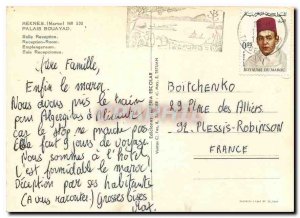 MEKNES. (Maroc) Nº 530
PALAIS BOUAYAD.
Salle Reception.
Reception-Room.
Empfangsraum.
Sala Recepciones.
ROYAUME DU MAROC
Famille,
Enfin le maroc.
Nous avons pris le train
pour Algeciras à
car le stop ne marche pas
Cela fait 9 jours de voyage
Nous sommes à l'hotel
C'est formidable le maroc!
Déception par ses habitants
(A vous raconter) Grosses Bises
BOITCHENKO
29 Place des Alliers.
92. PLESSIS-ROBINSON
FRANCE